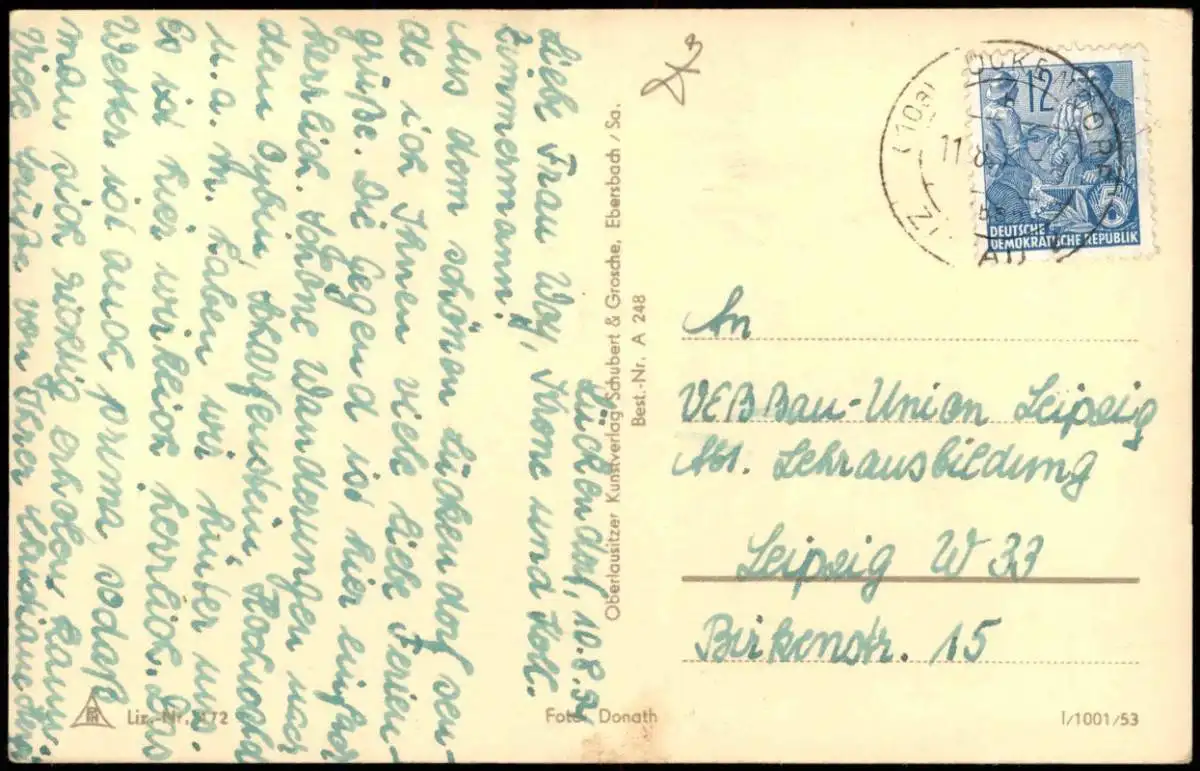 Lückendorf, 10.8.54
Liebe Frau Way, Simone und Koll.
Zimmermann!
Aus dem schönen Lückendorf sen-
de ich Ihnen viele liebe Ferien-
grüße. Die Gegend ist hier einfach
herrlich. Schöne Wanderungen nach
dem Oybin, Scharfenstein, Hochwald
u.a.m. haben wir hinter uns.
Es ist hier wirklich herrlich. Das
Wetter ist auch prima sodaß
man sich richtig erholen kann.
Viele Grüße von Ihrer
Oberlausitzer Kunstverlag Schubert & Grosche, Ebersbach / Sa.
Best.-Nr. A 248
12
DEUTSCHE
DEMOKRATISCHE REPUBLIK
An
VEB Bau-Union Leipzig
Abt. Lehrausbildung
Leipzig W 33
Birkenstr. 15
Liz.-Nr. 472
Foto: Donath
I/1001/53